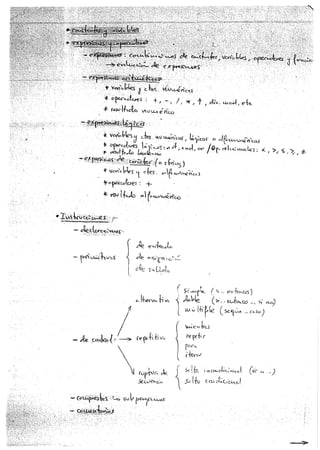 • constantes y variables
• expresiones y operadores
– expresiones: combinaciones de constantes, variables, operadores y
→ evaluación de expresiones
– expresiones aritméticas
* variables y ctes. numéricas
* operadores: +, -, /, *, ↑, div, mod, etc
* resultado numérico
– expresiones lógicas
* variables y ctes. numéricas, lógicas o alfanuméricas
* operadores lógicos: not, and, or / Op. relacionales: <, >, ≤, ≥, ≠
* resultado booleano
– expresiones de carácter (o string)
* variables y ctes. alfanuméricas
* operadores: +
* resultado alfanumérico
• Instrucciones:
– declaraciones
– primitivas
de entrada
de asignación
de salida
– de control
alternativa
simple (si.. entonces)
doble (si.. entonces... si no)
múltiple (según... caso)
repetitiva
mientras
repetir
para
iterar
ruptura de secuencia
salto incondicional
salto condicional
– compuestas subprogramas
– comentarios
→